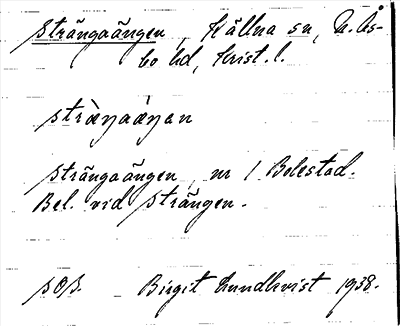 Strängaängen, Källna sn, N. Ås-
bo hd, Krist. l.
stràŋaǽŋən
Strängaängen, nr 1 Bolestad.
Bel. vid Strängen.
Birgit Lundkvist 1938.